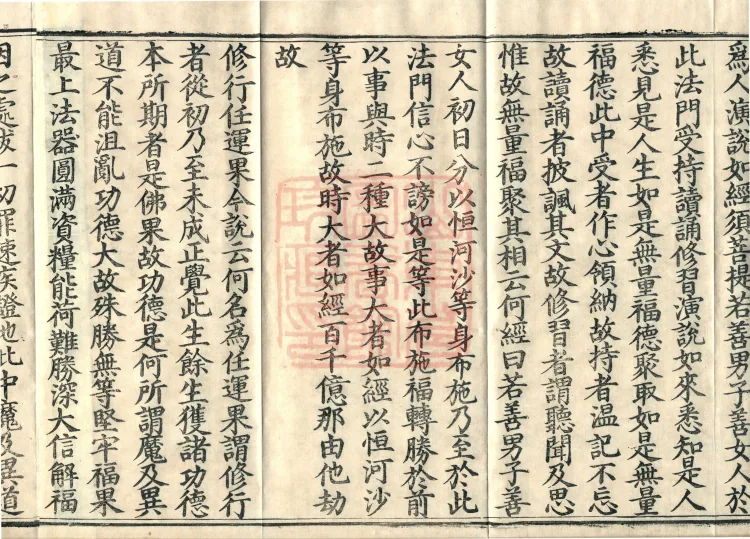 爲人演說如經須菩提若善男子善女人於
此法門受持讀誦修習演說如來悉知是人
悉見是人生如是無量福德聚取如是無量
福德此中受者作心領納故持者溫記不忘
故讀誦者披諷其文故修習者謂聽聞及思
惟故無量福聚其相云何經曰若善男子善
女人初日分以恒河沙等身布施乃至於此
法門信心不謗如是等此布施福轉勝於前
以事與時二種大故事大者如經以恒河沙
等身布施故時大者如經百千億那由他劫
故
修行任運果今說云何名爲任運果謂修行
者從初乃至未成正覺此生餘生獲諸功德
本所期者是佛果故功德是何所謂魔及異
道不能沮亂功德大故殊勝無等堅牢福果
最上法器圓滿資糧能荷難勝深大信解福
因之處拔一切罪速疾證地此中魔及異道